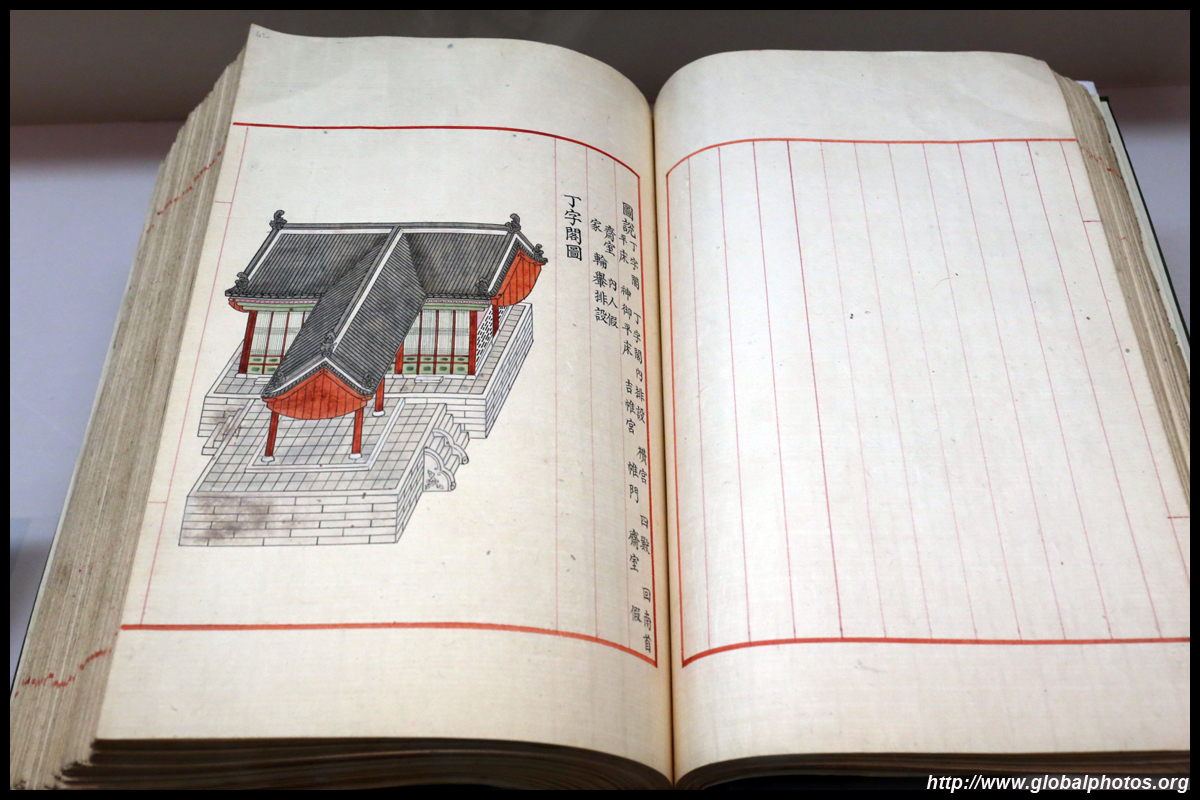 圖說
丁字閣 丁字閣內排設 宮 南首
平床 神御平床 吉帷宮 帷門 齋室 假
齋室 內人假
家 輪轝排設
丁字閣圖
http://www.globalphotos.org